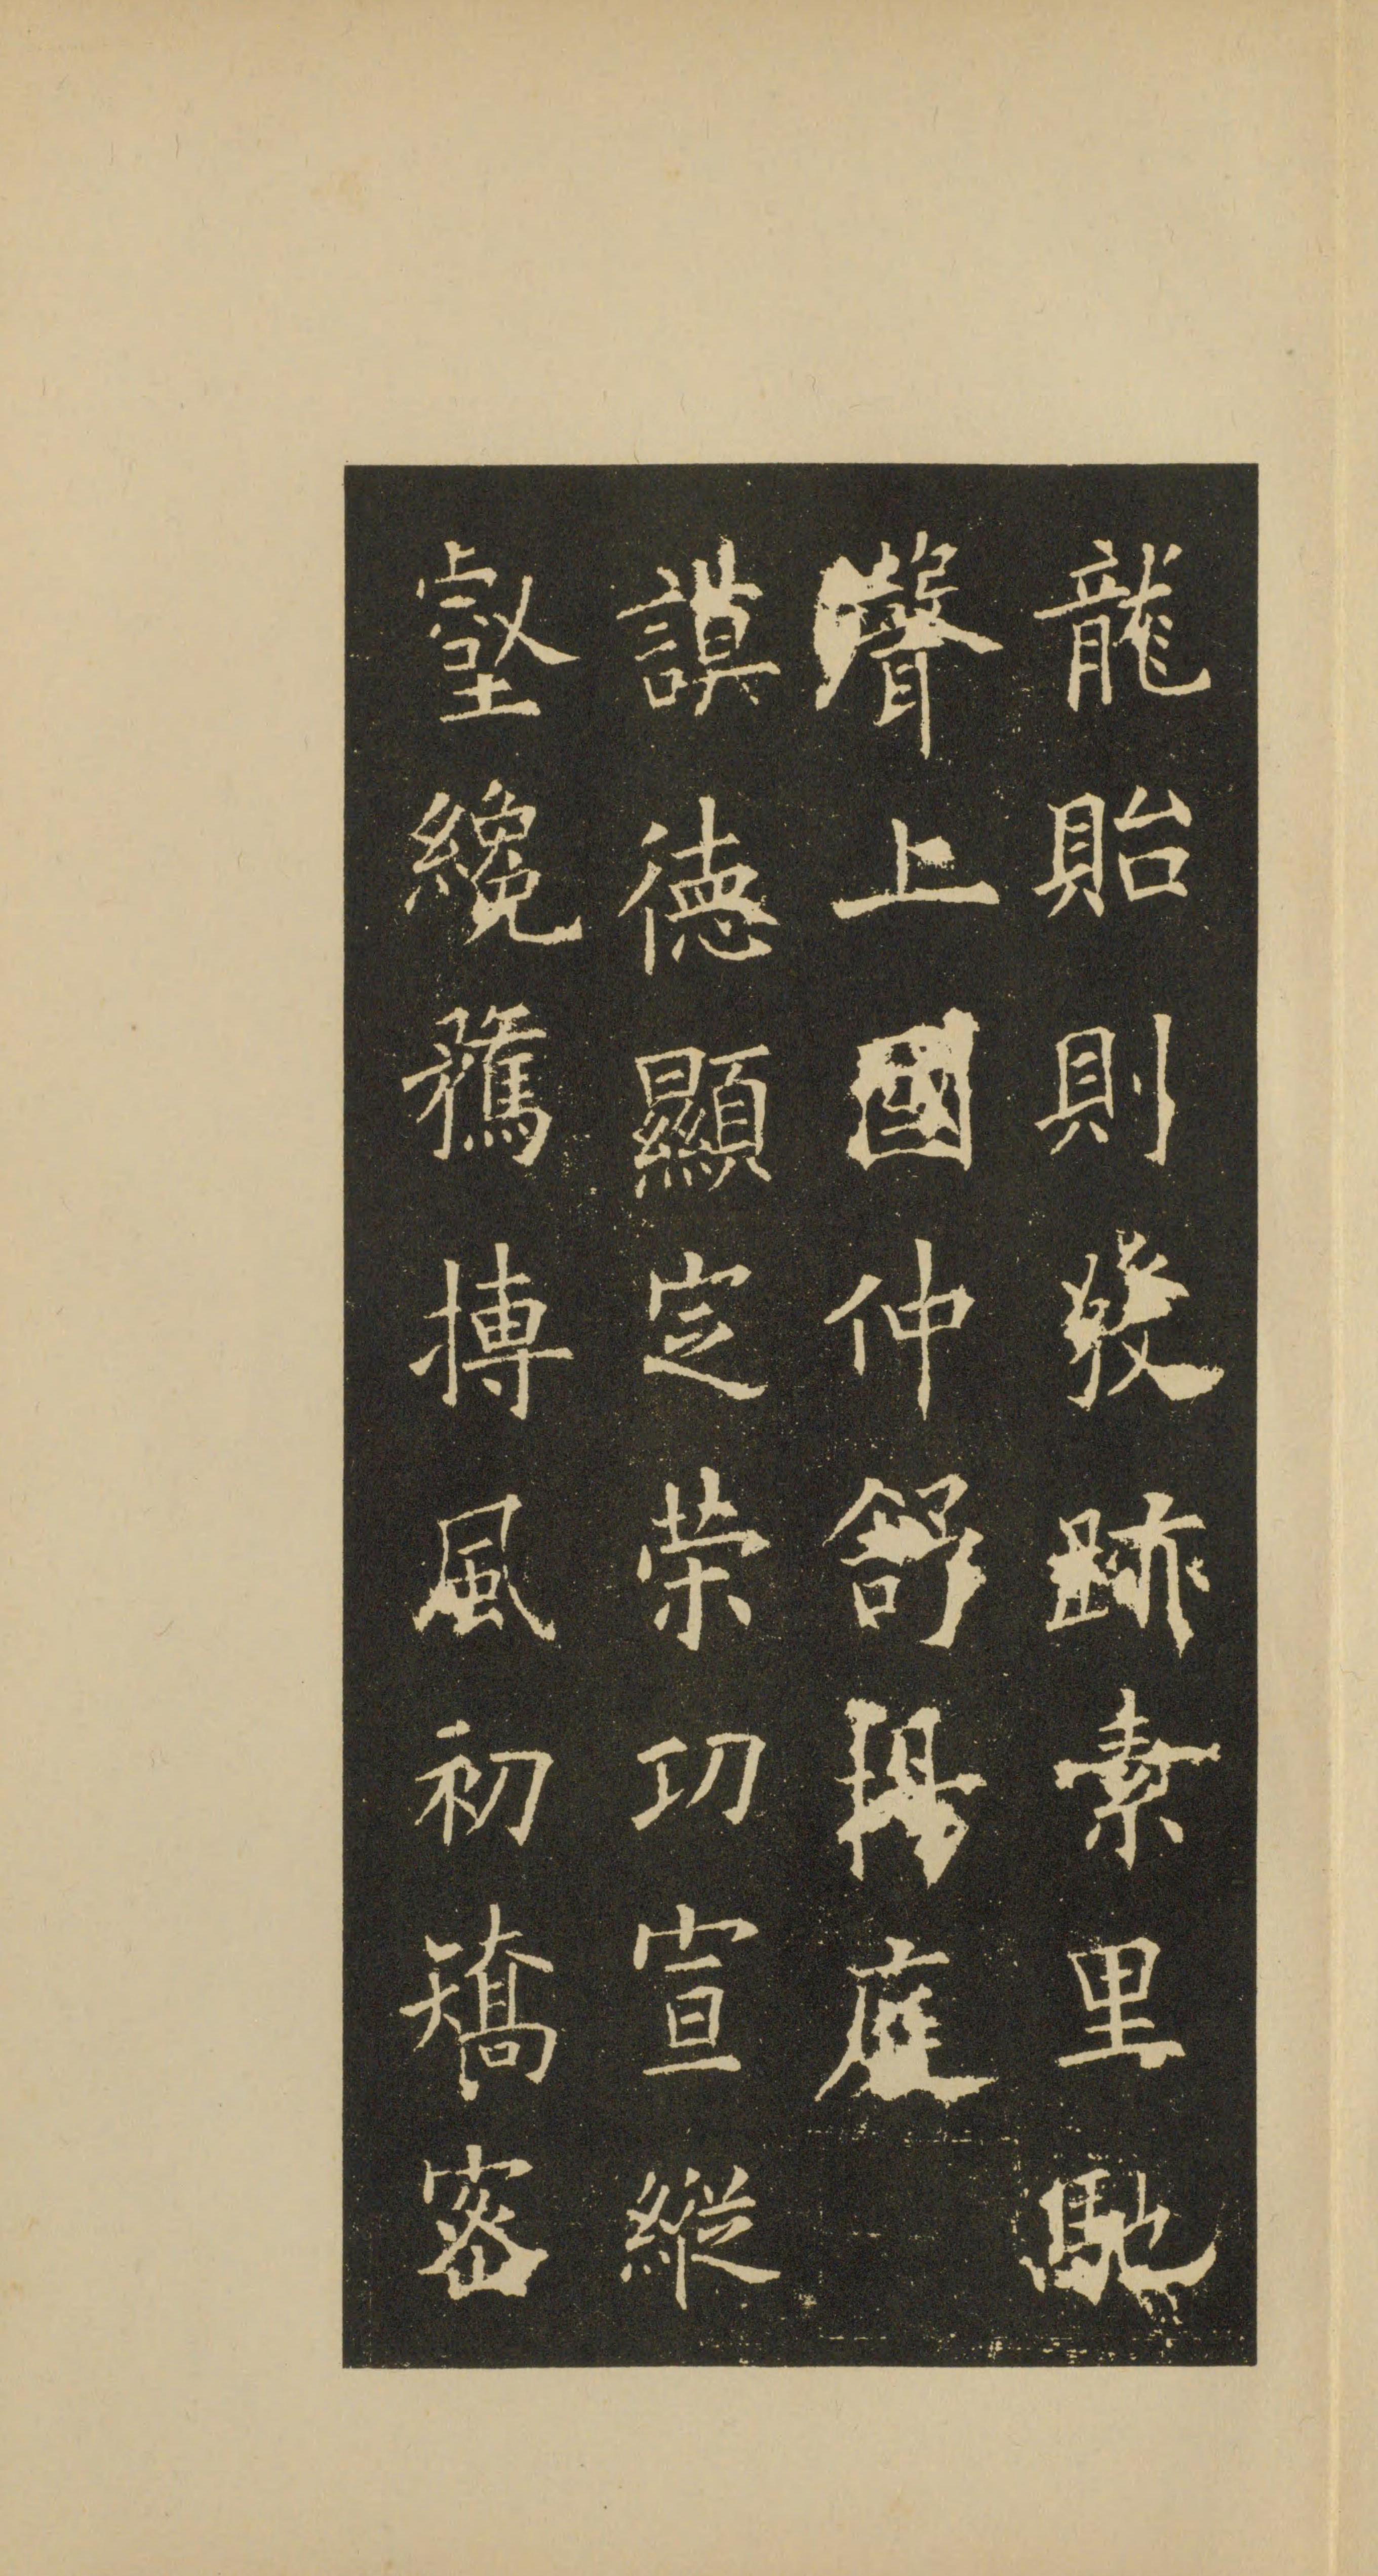 龍貽則發跡素里馳
聲上國仲舒揚庭
謨德顯定榮功宣縱
壑纔摶風初矯密